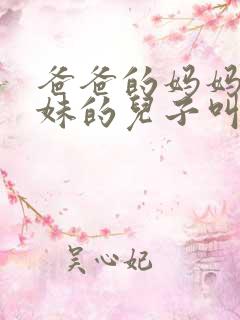 爸爸的妈妈
妹的兒子叫
吴心妃